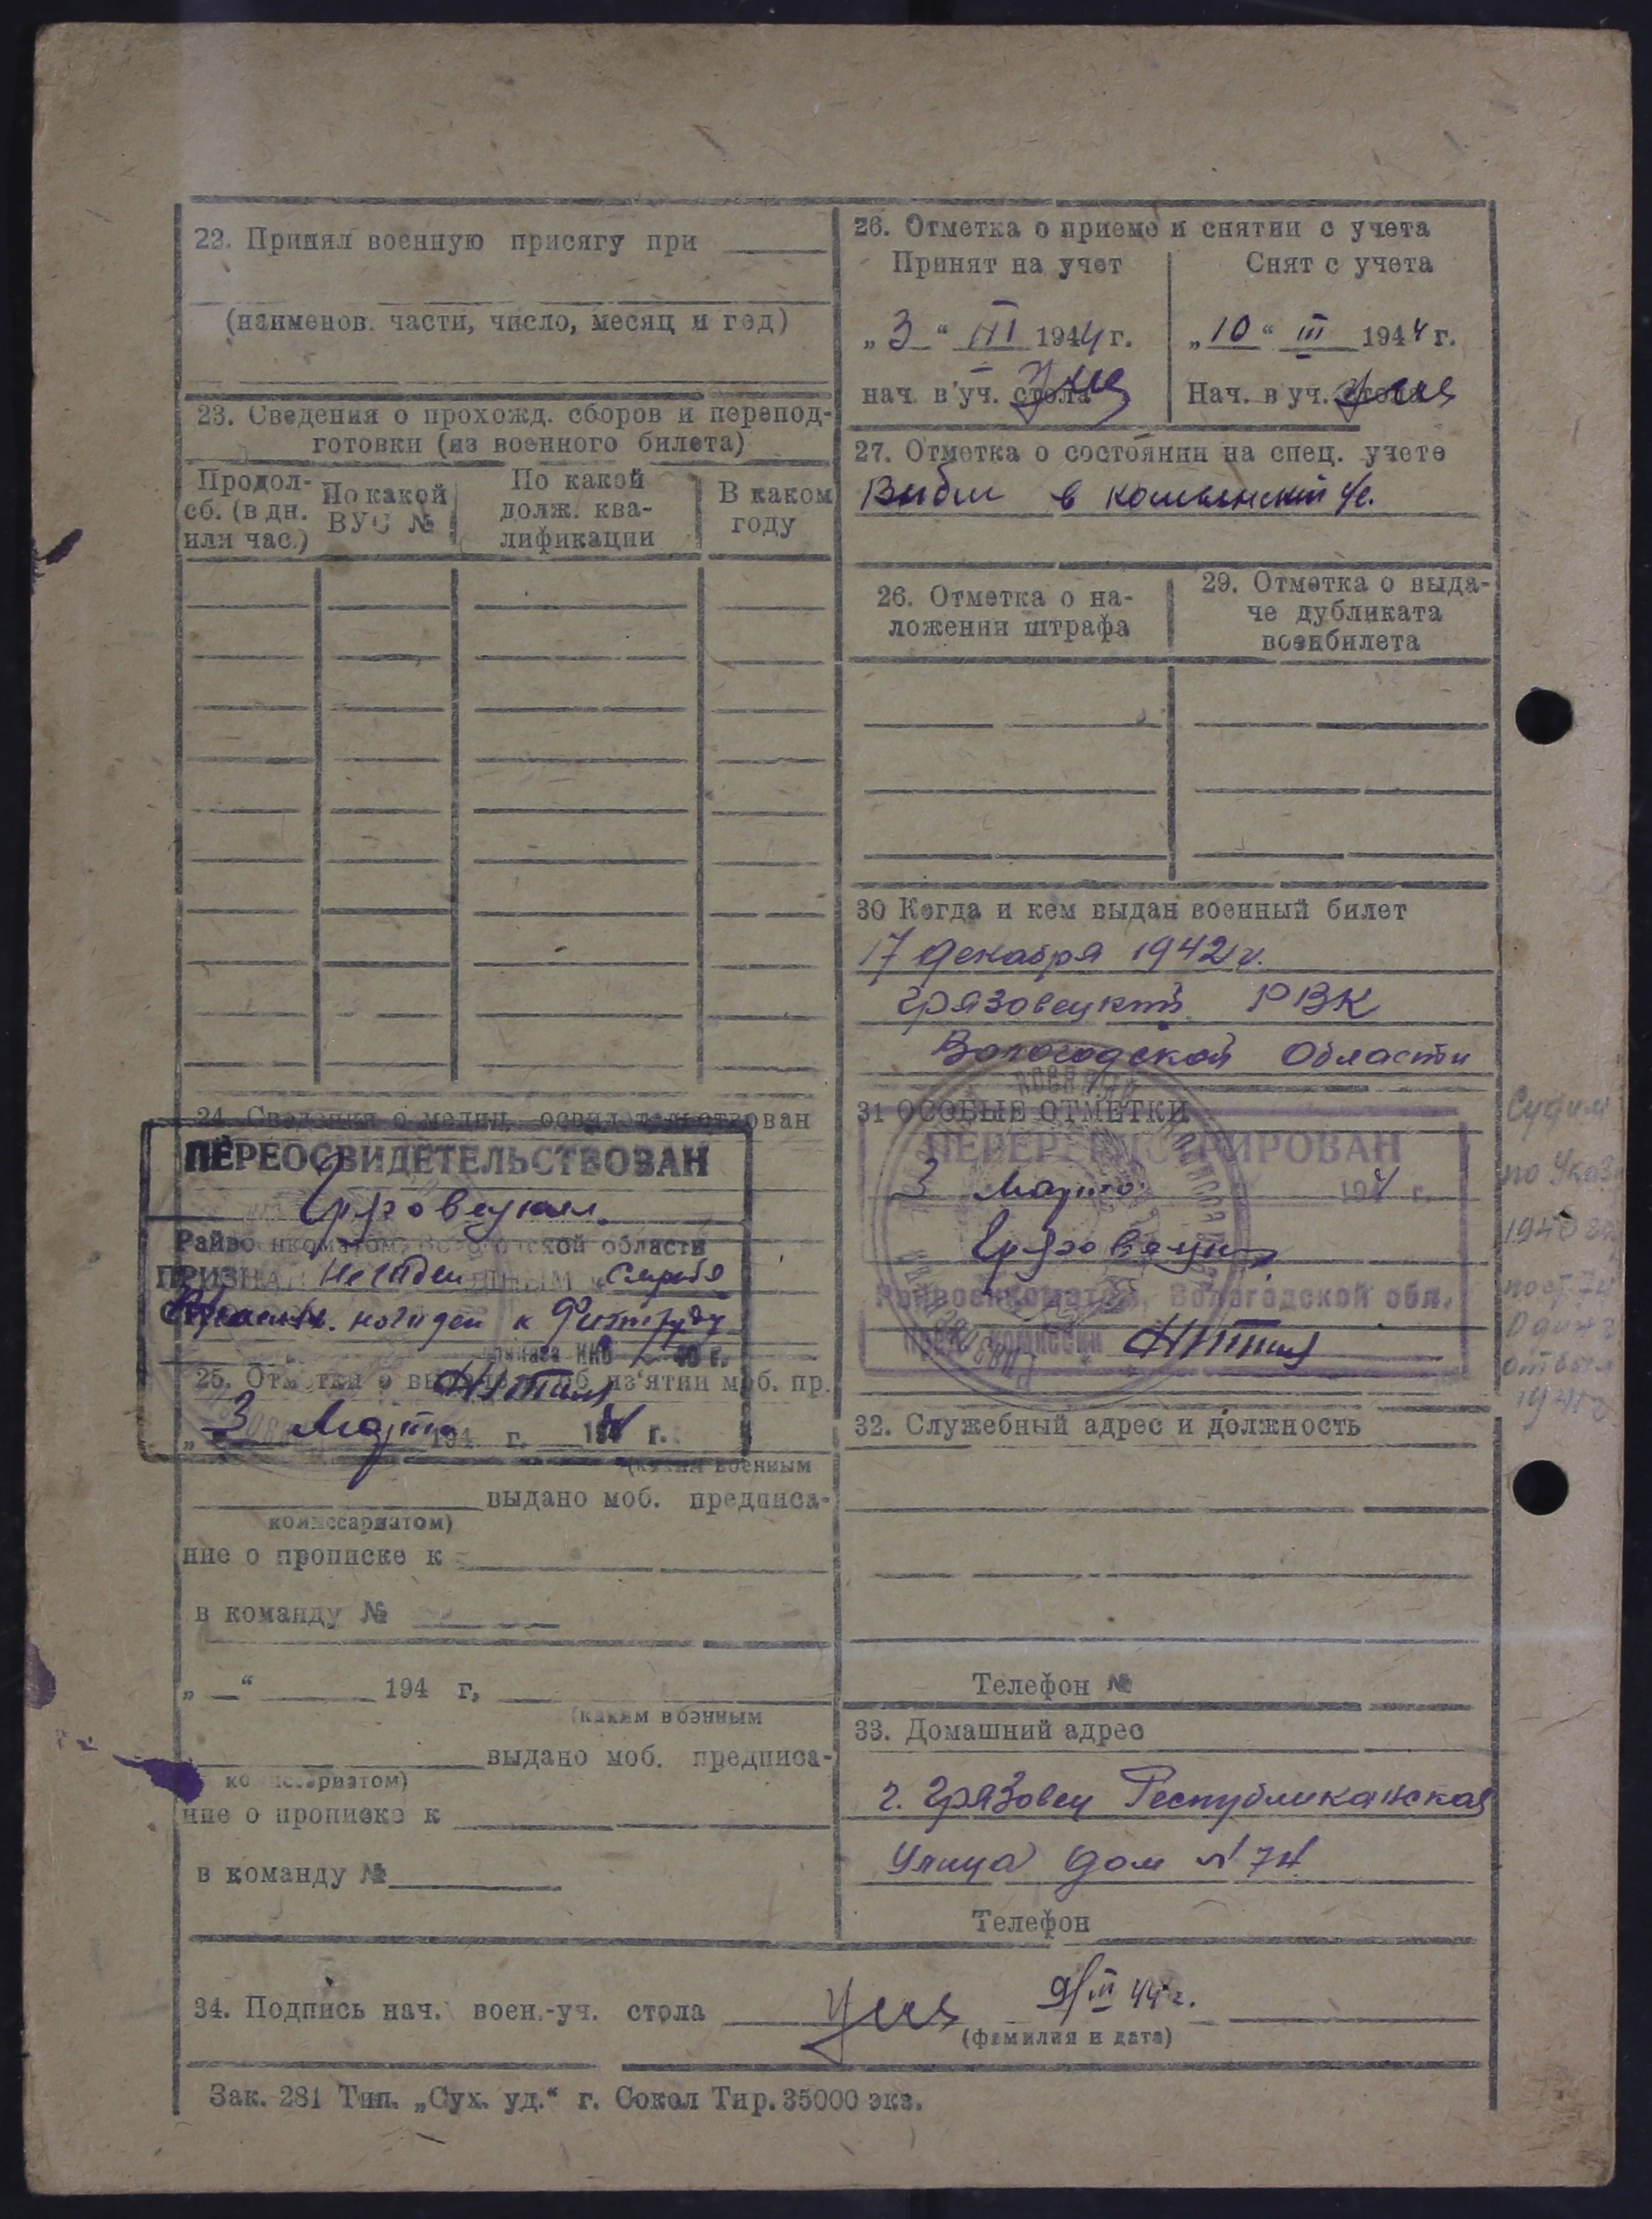 22. Принял военную присягу при
(наименов. части, число, месяц и год)
23. Сведения о прохожд. сборов и перепод-
готовки (из военного билета)
Продол-
сб. (в дн.
или час.)
По какой
ВУС №
По какой
долж. ква-
лификации
В каком
году
24. Сведения о медиц. освидетельствован
ПЕРЕОСВИДЕТЕЛЬСТВОВАН
Грязовецким
Райвоенкоматом, Вологодской области
ПРИЗНАН
годен к физтруду
приказа НКО
25. Отметки о выдаче об из'ятии моб. пр.
„3 Марта 194 г. 194 г.
(каким военным
выдано моб. предписа-
комиссариатом)
ние о прописке к
в команду №
„ “ 194 г,
(каким военным
выдано моб. предписа-
комиссариатом)
ние о прописке к
в команду №
26. Отметка о приеме и снятии с учета
Принят на учет
„3“ III 1944 г.
нач. в уч. стола
Снят с учета
„10“ III 1944 г.
Нач. в уч. стола
27. Отметка о состоянии на спец. учете
Выбыл в
26. Отметка о на-
ложении штрафа
29. Отметка о выда-
че дубликата
военбилета
30 Когда и кем выдан военный билет
17 декабря 1942 г.
Грязовецкий РВК
Вологодской Области
31 ОСОБЫЕ ОТМЕТКИ
ПЕРЕРЕГИСТРИРОВАН
3 Марта 1944 г.
Грязовецким
Райвоенкоматом, Вологодской обл.
Пред. комиссии
32. Служебный адрес и должность
Телефон №
33. Домашний адрес
г. Грязовец Республиканская
Улица дом №74
Телефон
34. Подпись нач. воен.-уч. стола 9/III 44 г.
(фамилия и дата)
Зак. 281 Тип. „Сух. уд.“ г. Сокол Тир. 35000 экз.
по Указ
1940
1941 г